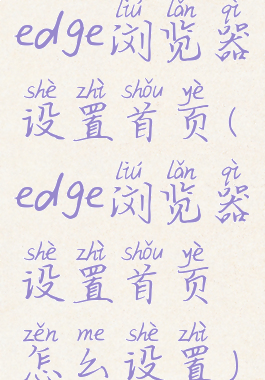 liú lǎn qì
edge浏览器
shè zhì shǒu yè
设置首页(
liú lǎn qì
edge浏览器
shè zhì shǒu yè
设置首页
zěn me shè zhì
怎么设置)